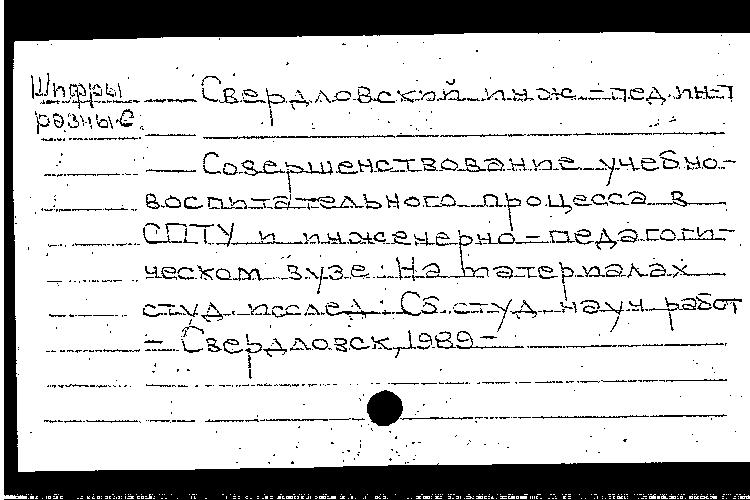 Шифры разные
Свердловский инж.-пед. ин-т
Совершенствование учебно-
воспитательного процесса в
СПТУ и инженерно-педагоги-
ческом вузе: На материалах
студ. исслед.: Сб. студ. науч. работ
- Свердловск, 1989 -